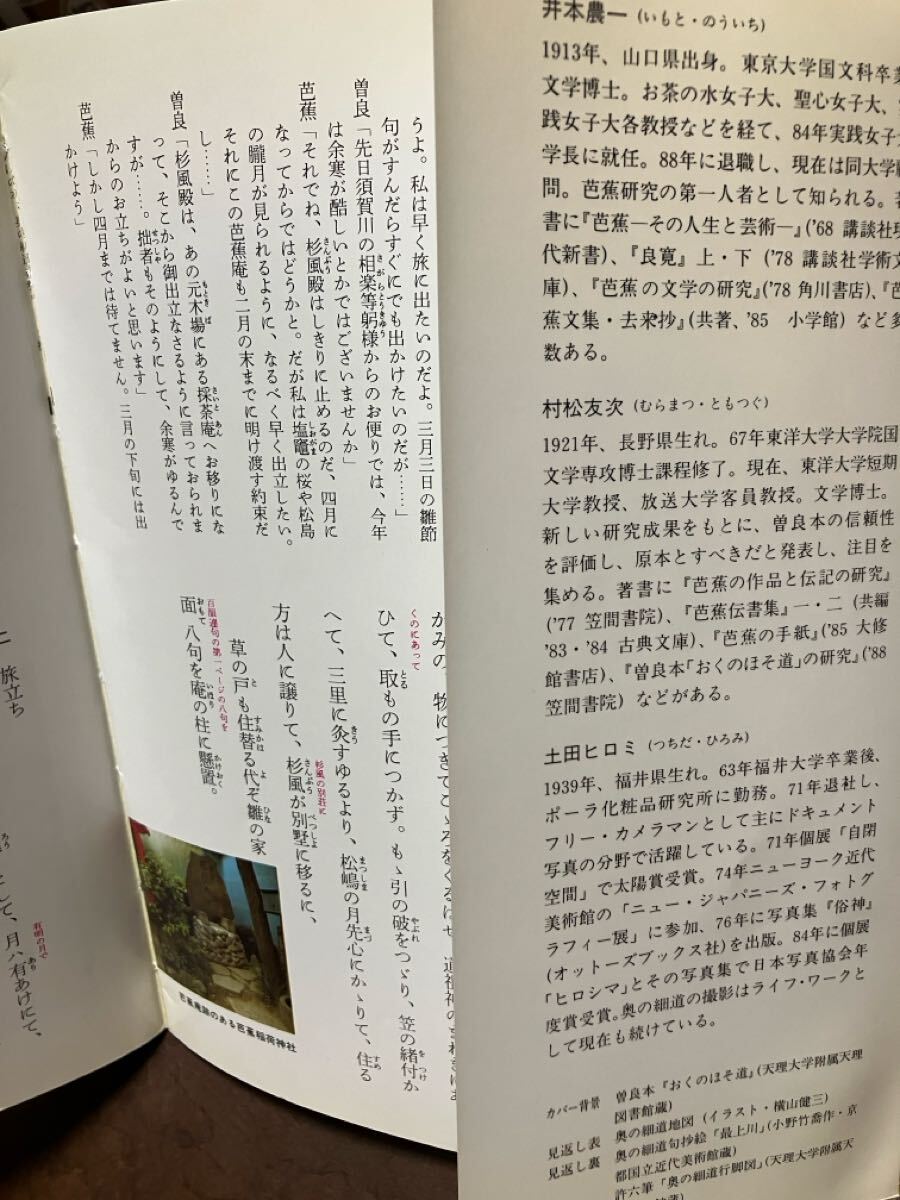 井本農一（いもと・のういち）
1913年、山口県出身。東京大学国文科卒業
文学博士。お茶の水女子大、聖心女子大、
践女子大各教授などを経て、84年実践女子
学長に就任。88年に退職し、現在は同大学
問。芭蕉研究の第一人者として知られる。著
書に『芭蕉―その人生と芸術―』（'68 講談社現
代新書）、『良寛』上・下（'78 講談社学術文
庫）、『芭蕉の文学の研究』（'78 角川書店）、『芭
蕉文集・去来抄』（共著、'85 小学館）など多
数ある。
村松友次（むらまつ・ともつぐ）
1921年、長野県生れ。67年東洋大学大学院国
文学専攻博士課程修了。現在、東洋大学短期
大学教授、放送大学客員教授。文学博士。
新しい研究成果をもとに、曽良本の信頼性
を評価し、原本とすべきだと発表し、注目を
集める。著書に『芭蕉の作品と伝記の研究』
（'77 笠間書院）、『芭蕉伝書集』一・二（共編
'83・'84 古典文庫）、『芭蕉の手紙』（'85 大修
館書店）、『曽良本「おくのほそ道」の研究』（'88
笠間書院）などがある。
土田ヒロミ（つちだ・ひろみ）
1939年、福井県生れ。63年福井大学卒業後、
ポーラ化粧品研究所に勤務。71年退社し、
フリー・カメラマンとして主にドキュメント
写真の分野で活躍している。71年個展「自閉
空間」で太陽賞受賞。74年ニューヨーク近代
美術館の「ニュー・ジャパニーズ・フォトグ
ラフィー展」に参加、76年に写真集『俗神』
（オットーズブックス社）を出版。84年に個展
「ヒロシマ」とその写真集で日本写真協会年
度賞受賞。奥の細道の撮影はライフ・ワークと
して現在も続けている。
カバー背景 曽良本『おくのほそ道』（天理大学附属天理
図書館蔵）
見返し表 奥の細道地図（イラスト・横山健三）
見返し裏 奥の細道句抄絵「最上川」（小野竹喬作・京
都国立近代美術館蔵）
許六筆「奥の細道行脚図」（天理大学附属天
うよ。私は早く旅に出たいのだよ。三月三日の雛節
句がすんだらすぐにでも出かけたいのだが……」
曽良「先日須賀川の相楽等躬様からのお便りでは、今年
は余寒が酷しいとかではございませんか」
芭蕉「それでね、杉風殿はしきりに止めるのだ、四月に
なってからではどうかと。だが私は塩竈の桜や松島
の朧月が見られるように、なるべく早く出立したい。
それにこの芭蕉庵も二月の末までに明け渡す約束だ
し……」
曽良「杉風殿は、あの元木場にある採荼庵へお移りにな
って、そこから御出立なさるように言っておられま
すが……。拙者もそのようにして、余寒がゆるんで
からのお立ちがよいと思います」
芭蕉「しかし四月までは待てません。三月の下旬には出
かけよう」
ひて、取もの手につかず。もゝ引の破をつゞり、笠の緒付か
へて、三里に灸すゆるより、松嶋の月先心にかゝりて、住る
方は人に譲りて、杉風が別墅に移るに、
草の戸も住替る代ぞ雛の家
面八句を庵の柱に懸置。
くのにあって
杉風の別荘に
百韻連句の第一ページの八句を
芭蕉庵跡のある芭蕉稲荷神社
旅立ち
月ハ有あけにて、
有明の月で